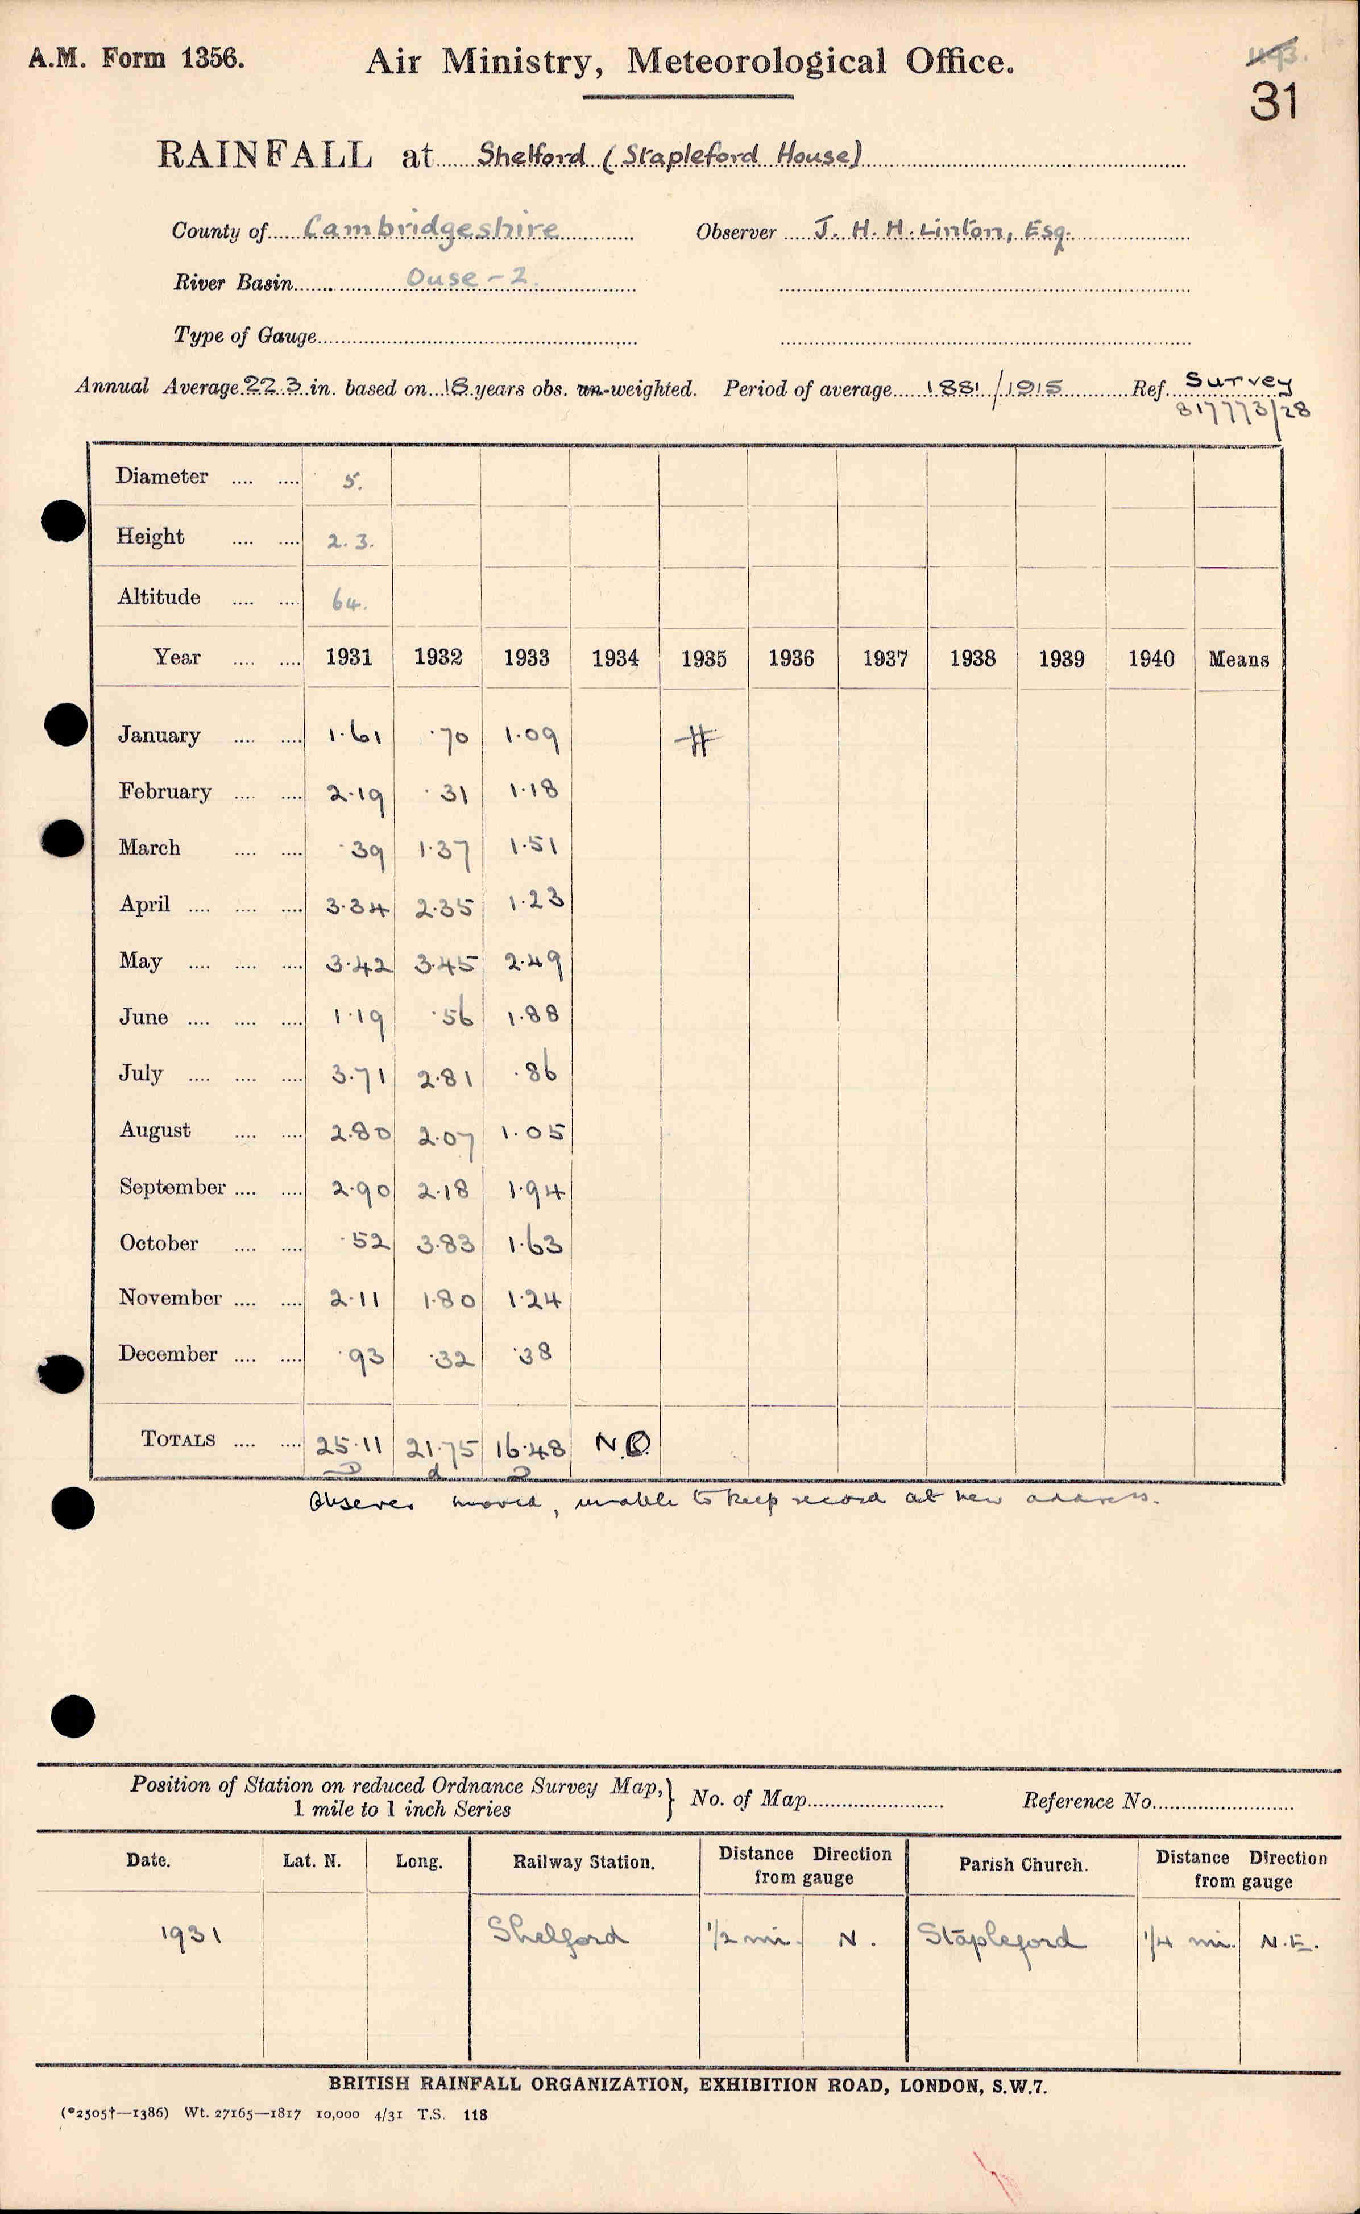 A.M. Form 1356.
Air Ministry, Meteorological Office.
31
RAINFALL at Shelford (Stapleford House)
County of Cambridgeshire Observer J. H. H. Linton, Esq.
River Basin Ouse - 2.
Type of Gauge
Annual Average 22.3 in. based on 18 years obs. un-weighted. Period of average 1881/1915 Ref. Survey
817773/28
Diameter 5.
Height 2.3.
Altitude 64.
Year 1931 1932 1933 1934 1935 1936 1937 1938 1939 1940 Means
January 1.61 .70 1.09 #
February 2.19 .31 1.18
March .39 1.37 1.51
April 3.34 2.35 1.23
May 3.42 3.45 2.49
June 1.19 .56 1.88
July 3.71 2.81 .86
August 2.80 2.07 1.05
September 2.90 2.18 1.94
October .52 3.83 1.63
November 2.11 1.80 1.24
December .93 .32 .38
TOTALS 25.11 21.75 16.48 N.O.
Observer moved, unable to keep record at new address.
Position of Station on reduced Ordnance Survey Map,} No. of Map Reference No.
1 mile to 1 inch Series
Date. Lat. N. Long. Railway Station. Distance Direction from gauge Parish Church. Distance Direction from gauge
1931 Shelford 1/2 mi. N. Stapleford 1/4 mi. N.E.
BRITISH RAINFALL ORGANIZATION, EXHIBITION ROAD, LONDON, S.W.7.
(*2505†—1386) Wt. 27165—1817 10,000 4/31 T.S. 118